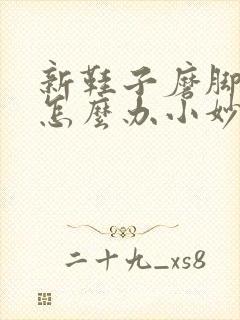 新鞋子磨脚
怎麼办小妙
二十九_xs8